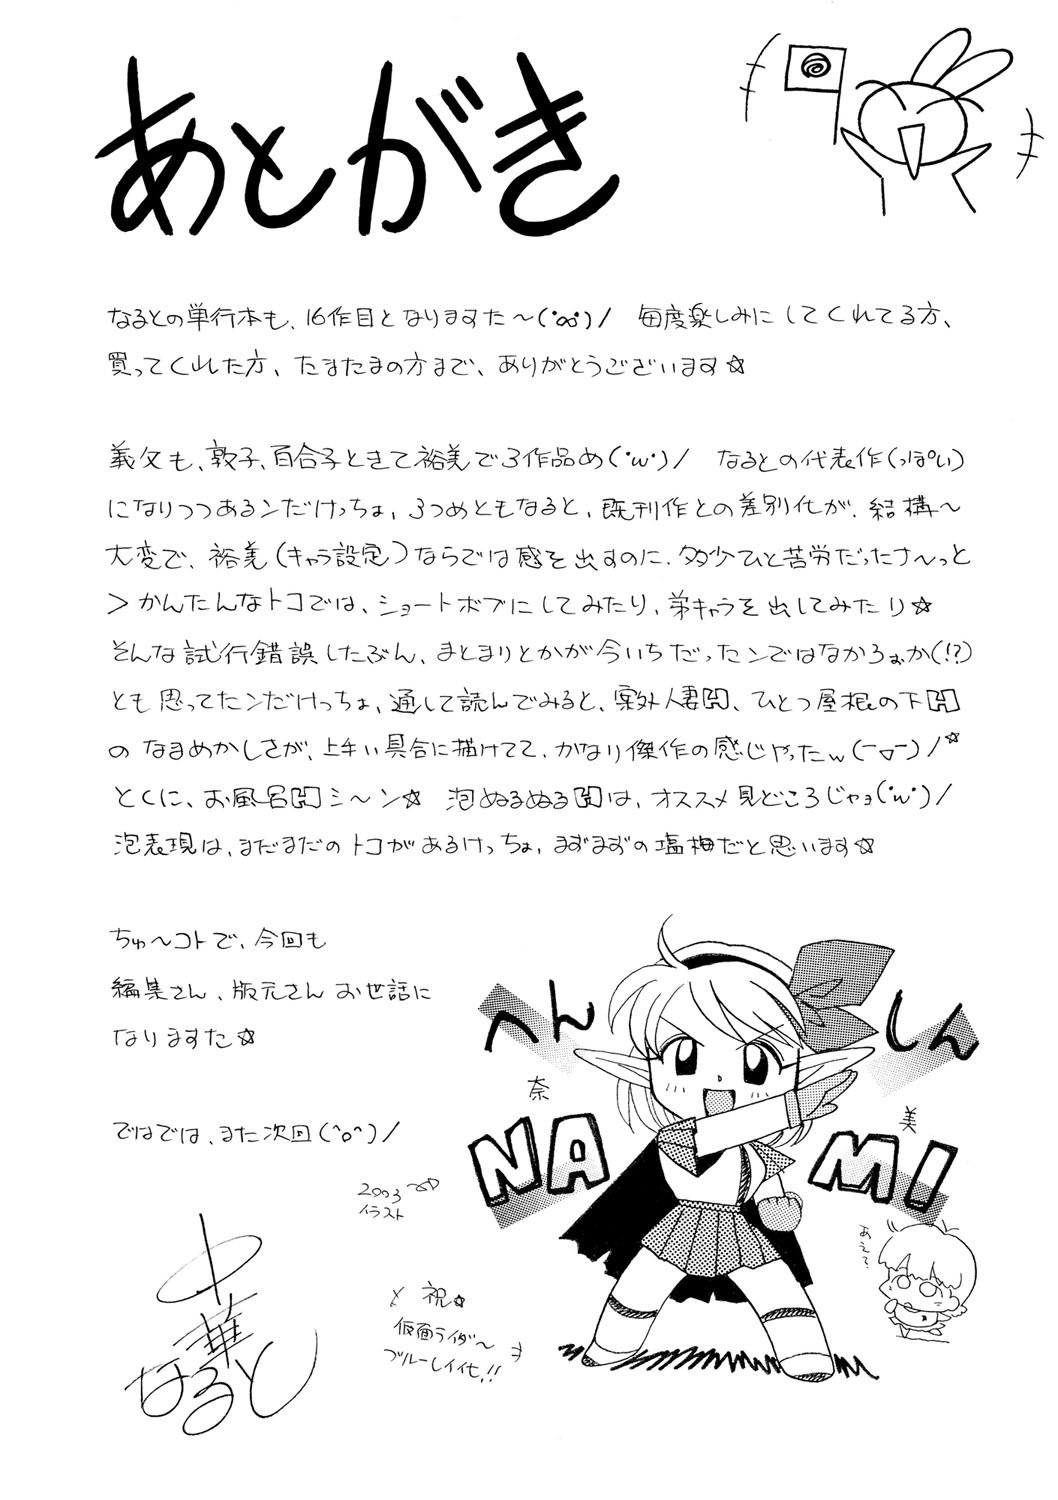 あとがき
なるとの単行本も、16作目となりますた〜(°∞°)/ 毎度楽しみにしてくれてる方、
買ってくれた方、たまたまの方まで、ありがとうございます☆
義父も、敦子、百合子ときて裕美で3作品め(・ω・)/ なるとの代表作(っぽい)
になりつつあるンだけっちょ、3つめともなると、既刊作との差別化が、結構〜
大変で、裕美(キャラ設定)ならでは感を出すのに、多少ひと苦労だったナ〜っと
＞かんたんなトコでは、ショートボブにしてみたり、弟キャラを出してみたり☆
そんな試行錯誤したぶん、まとまりとかが今いちだったンではなかろぉか(!?)
とも思ってたンだけっちょ、通して読んでみると、案外人妻H、ひとつ屋根の下H
の なまめかしさが、上手い具合に描けてて、かなり傑作の感じやったw(￣▽￣)/☆
とくに、お風呂Hシ〜ン☆ 泡ぬるぬるHは、オススメ見どころじゃョ(・ω・)/
泡表現は、まだまだのトコがあるけっちょ、まずまずの塩梅だと思います☆
ちゅ〜コトで、今回も
編集さん、版元さん お世話に
なりますた☆
ではでは、また次回(^o^)/
へん しん
奈 美
NA MI
2003
イラスト
あえて?
祝☆
仮面ライダ〜
ブルーレイ化!!
中華なると